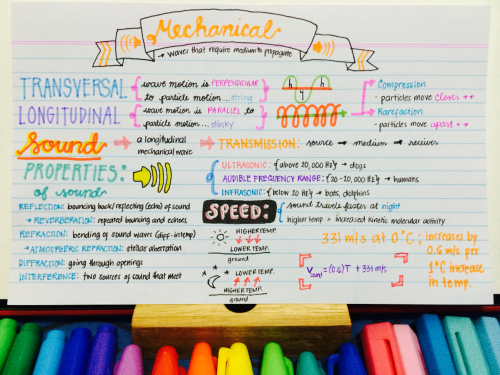 Mechanical
→ waves that require medium to propagate
TRANSVERSAL { wave motion is PERPENDICULAR to particle motion... string }
h
h
Compression
- particles move closer
LONGITUDINAL { wave motion is PARALLEL to particle motion... slinky }
Rarefaction
- particles move apart
Sound → a longitudinal mechanical wave
→ TRANSMISSION: source → medium → receiver
PROPERTIES:
of sound
ULTRASONIC: {above 20,000 Hz} → dogs
AUDIBLE FREQUENCY RANGE: {20-20,000 Hz} → humans
INFRASONIC: {below 20 Hz} → bats, dolphins
REFLECTION: bouncing back/reflecting (echo) of sound
→ REVERBERATION: repeated bouncing and echoes
REFRACTION: bending of sound waves (diff. temp)
→ ATMOSPHERIC REFRACTION: stellar aberration
DIFFRACTION: going through openings
INTERFERENCE: two sources of sound that meet
SPEED: { sound travels faster at night
higher temp = increased kinetic molecular activity
HIGHER TEMP.
LOWER TEMP.
ground
LOWER TEMP.
HIGHER TEMP.
ground
331 m/s at 0°C; increases by
0.6 m/s per
1°C increase
in temp.
Vsound = (0.6)T + 331 m/s